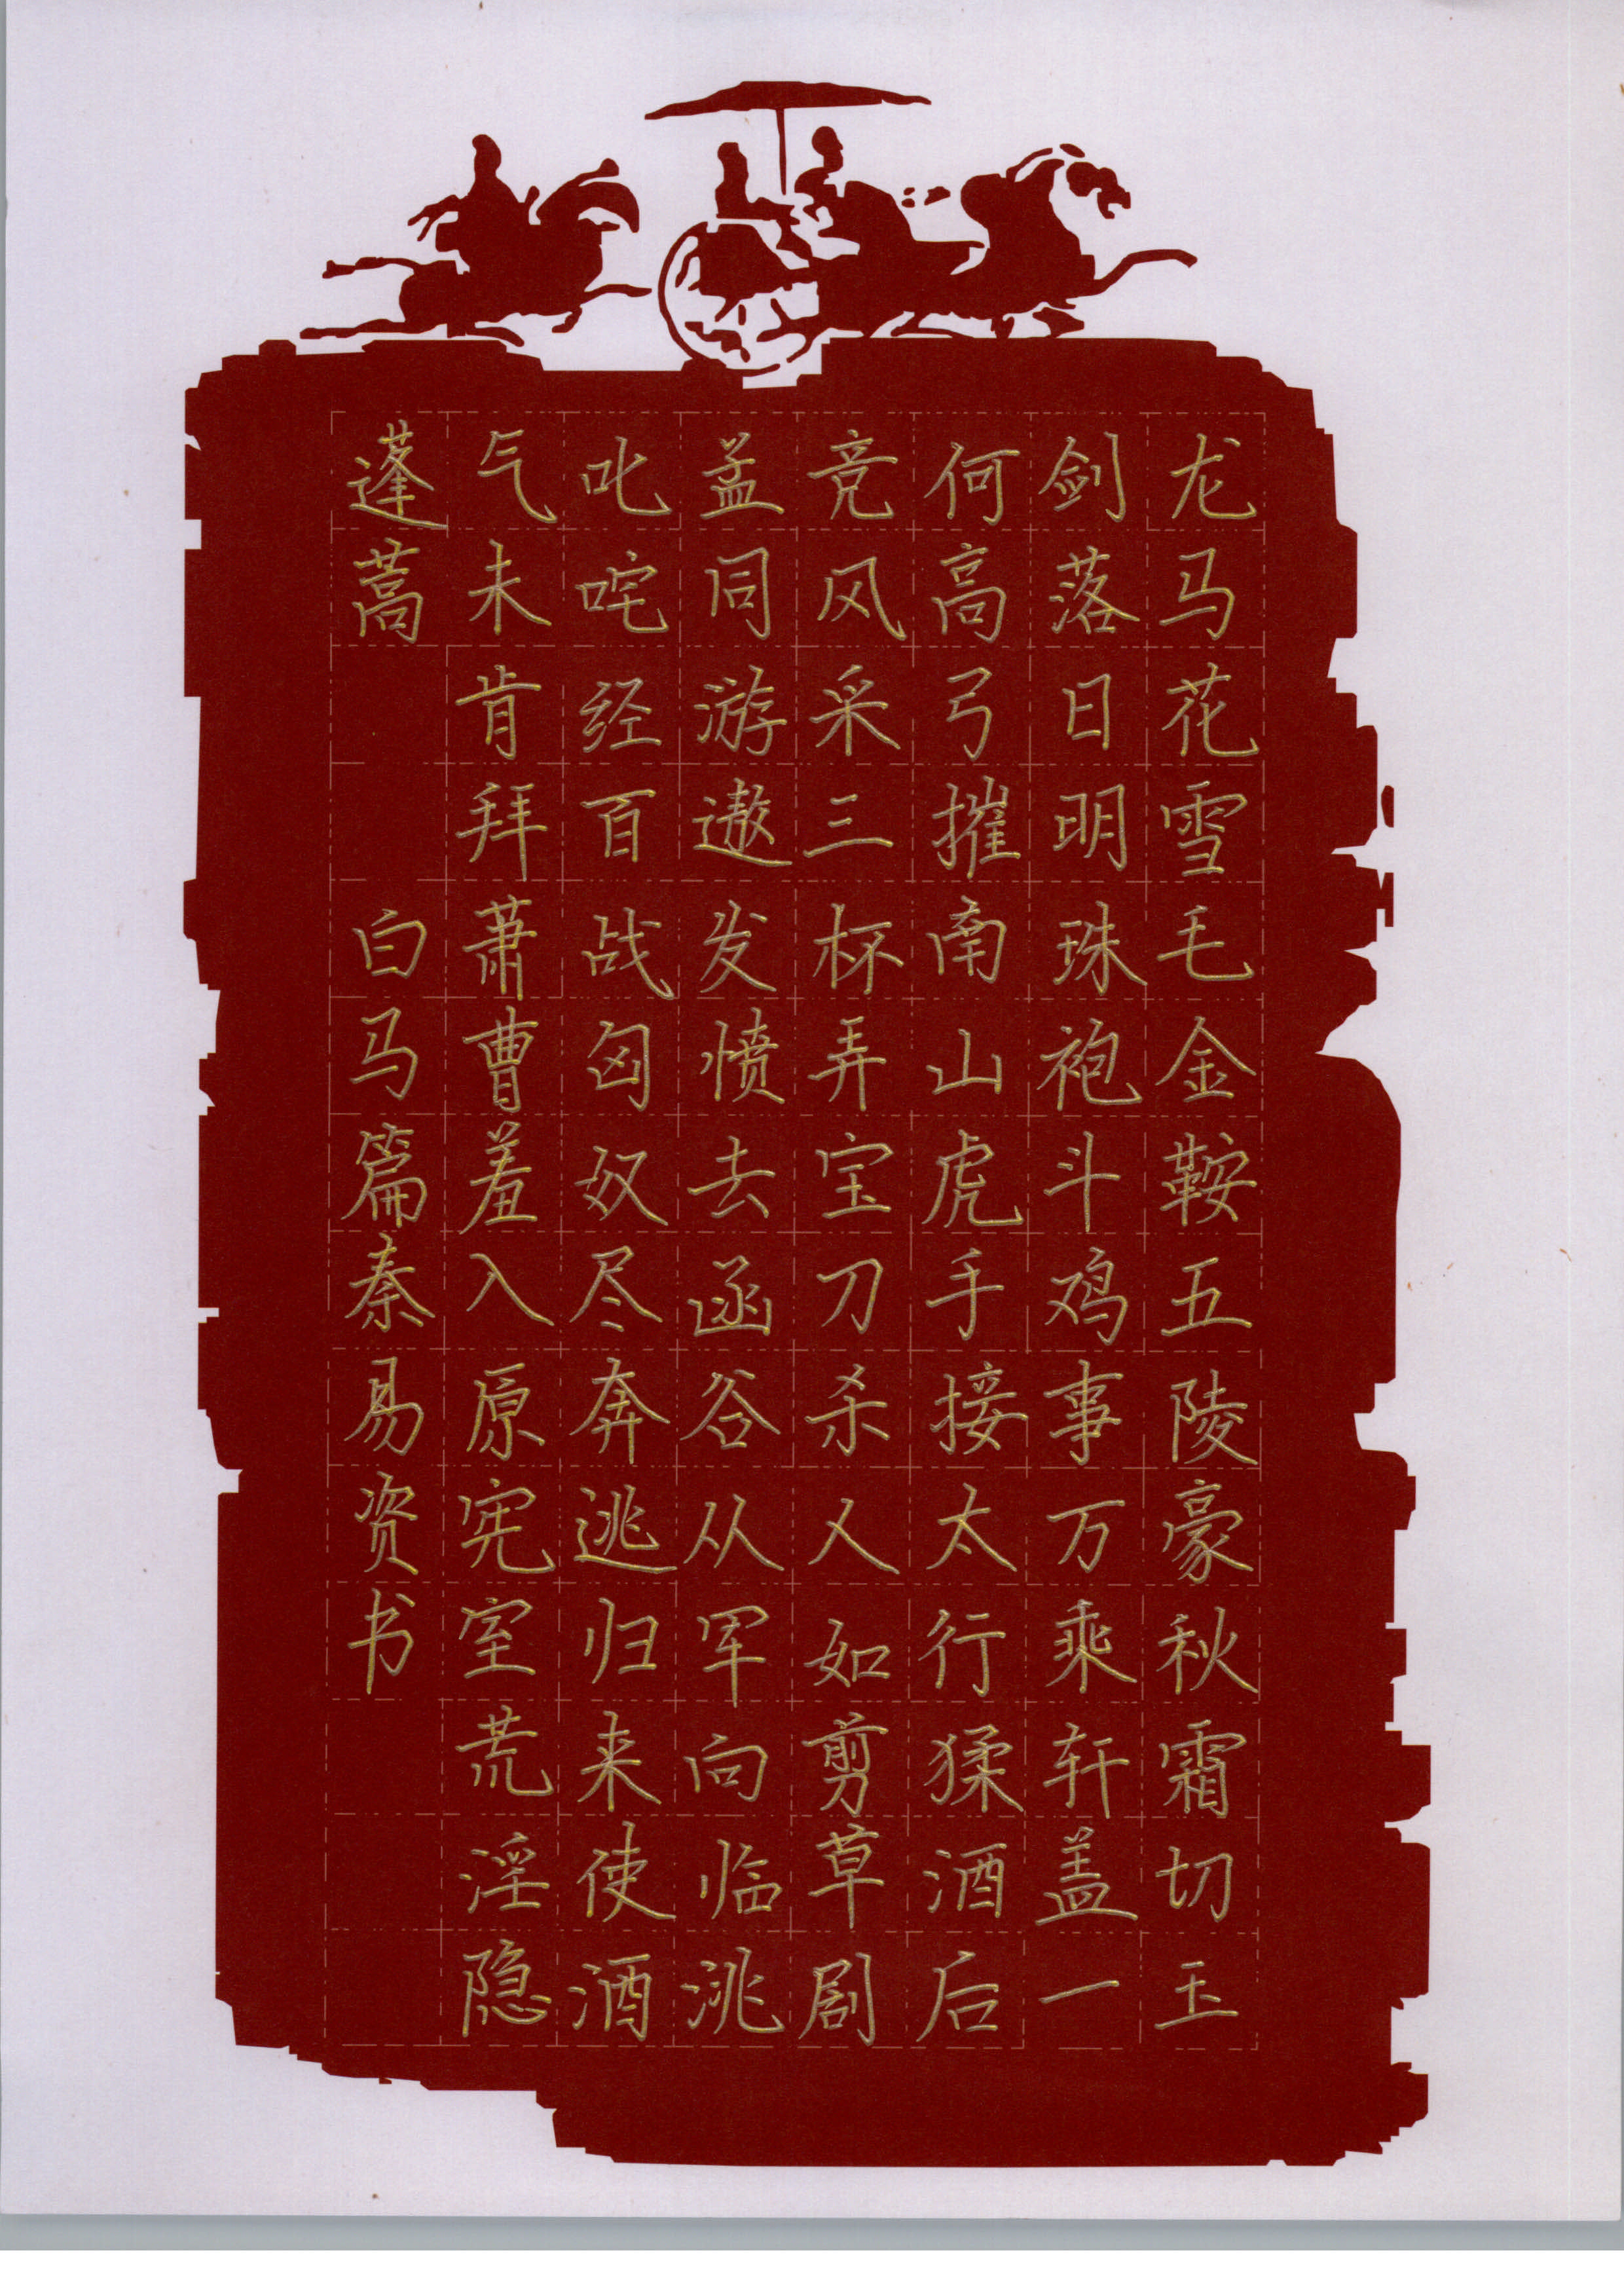 龙马花雪毛金鞍五陵豪秋霜切玉
剑落日明珠袍斗鸡事万乘轩盖一
何高弓摧南山虎手接太行猱酒后
竞风采三杯弄宝刀杀人如剪草剧
孟同游遨发愤去函谷从军向临洮
叱咤经百战匈奴尽奔逃归来使酒
气未肯拜萧曹羞入原宪室荒淫隐
蓬蒿 白马篇秦易资书